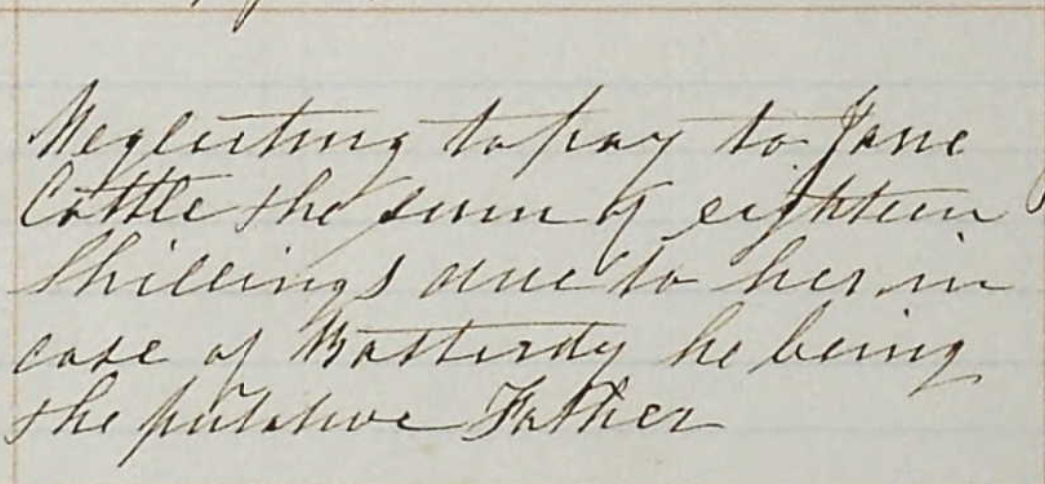 Neglecting to pay to Jane
Cottle the sum of eighteen
Shillings due to her in
case of Basterdy he being
the putative Father